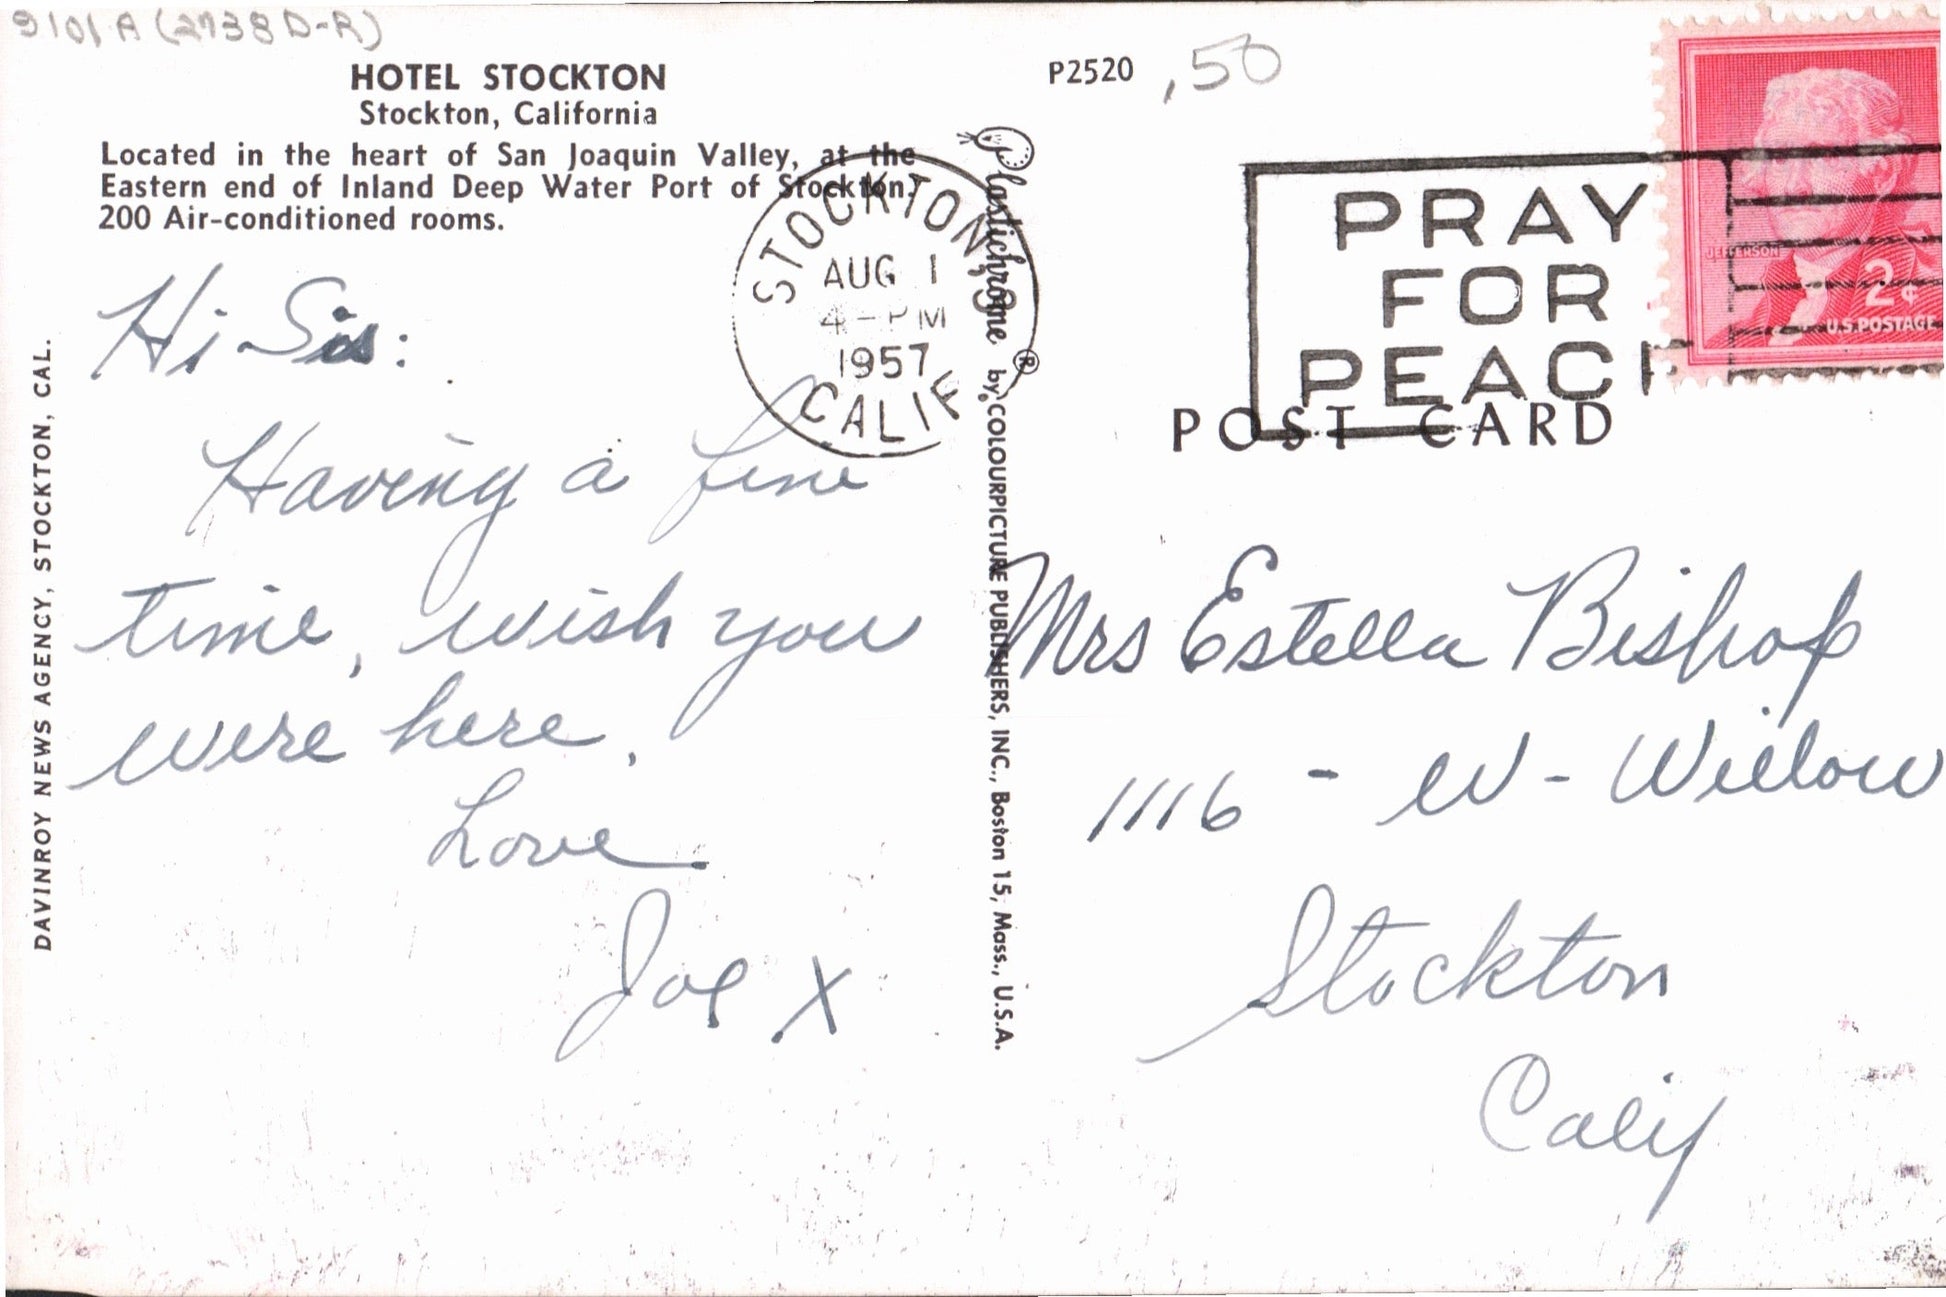 9101A (2738D-R)
HOTEL STOCKTON
Stockton, California
Located in the heart of San Joaquin Valley, at the
Eastern end of Inland Deep Water Port of Stockton.
200 Air-conditioned rooms.
Hi Sis:
Having a fine
time, wish you
were here.
Love
Joe X
DAVINROY NEWS AGENCY, STOCKTON, CAL.
STOCKTON,
AUG 1
4-PM
1957
CALIF
Plastichrome ® by COLOURPICTURE PUBLISHERS, INC., Boston 15, Mass., U.S.A.
P2520
,50
PRAY
FOR
PEACE
JEFFERSON
2¢
U.S.POSTAGE
POST CARD
Mrs Estella Bishop
1116 - W - Willow
Stockton
Calif